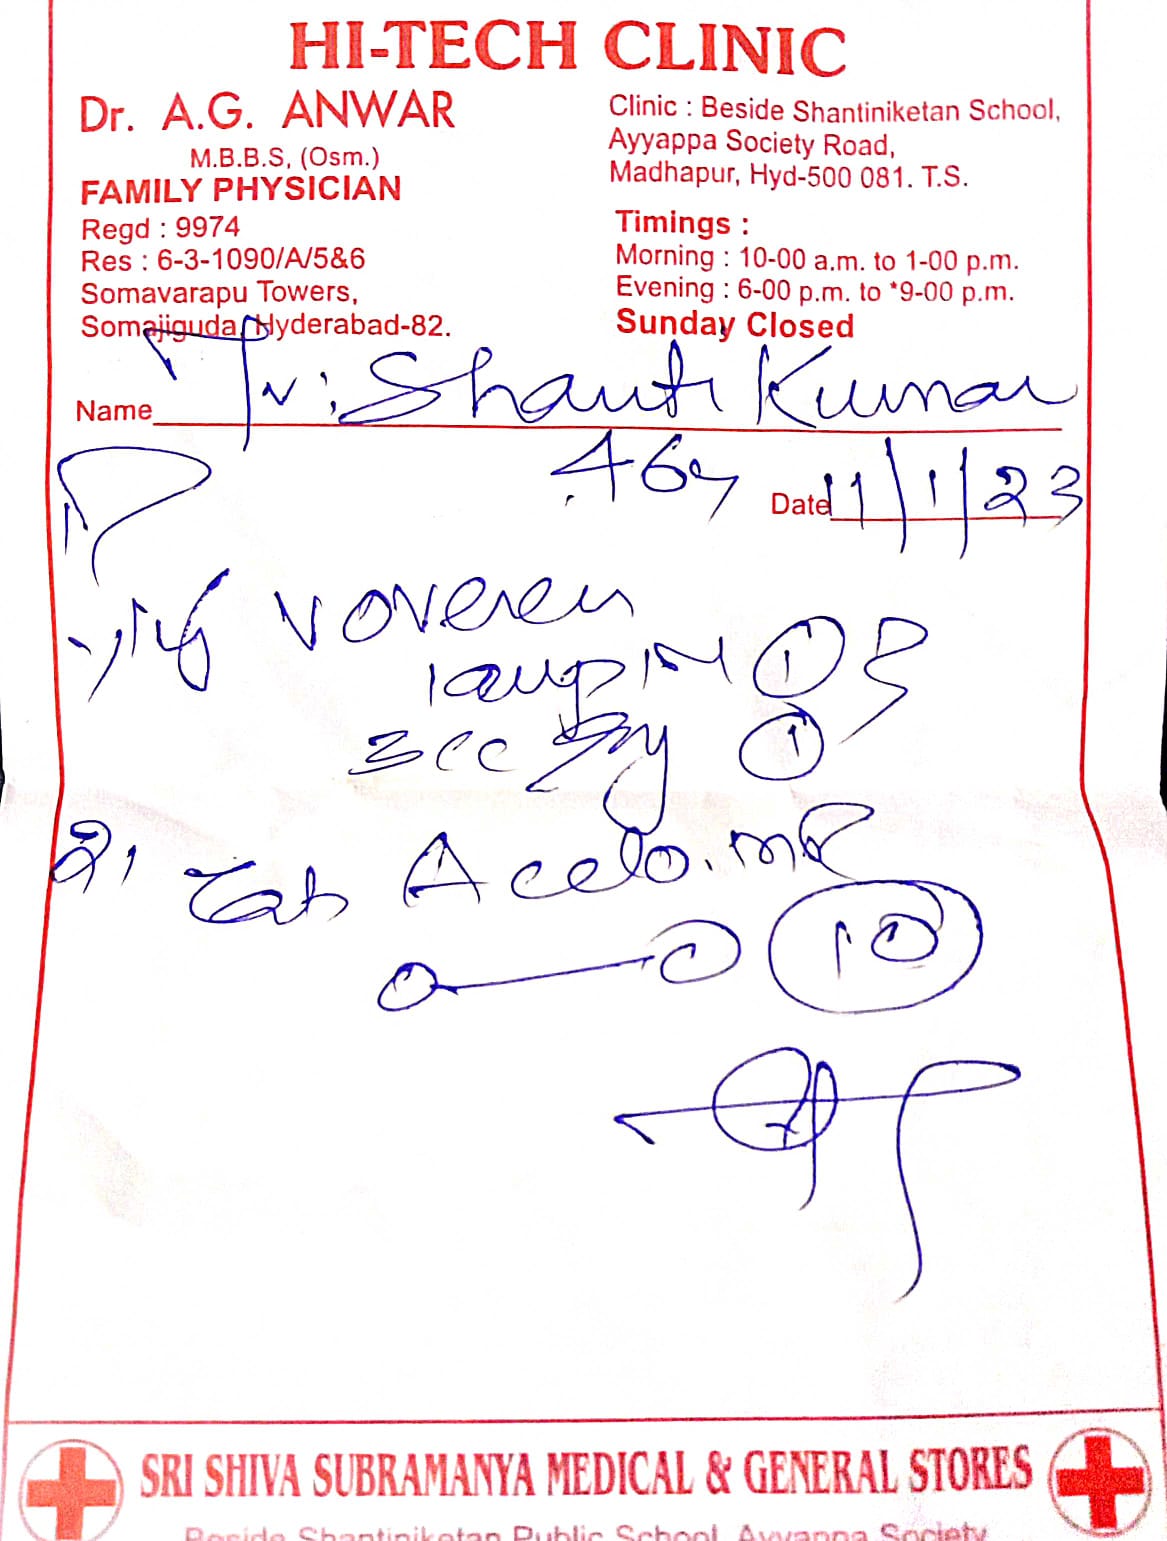 HI-TECH CLINIC
Dr. A.G. ANWAR
M.B.B.S, (Osm.)
FAMILY PHYSICIAN
Regd : 9974
Res : 6-3-1090/A/5&6
Somavarapu Towers,
Somajiguda, Hyderabad-82.
Clinic : Beside Shantiniketan School,
Ayyappa Society Road,
Madhapur, Hyd-500 081. T.S.
Timings :
Morning : 10-00 a.m. to 1-00 p.m.
Evening : 6-00 p.m. to *9-00 p.m.
Sunday Closed
Name Shanti Kumar
46y
Date 11/1/23
Voveren
1amp IM 1
3cc Sy 1
2, Tab Acelo.mr
10
SRI SHIVA SUBRAMANYA MEDICAL & GENERAL STORES
Beside Shantiniketan Public School, Ayyappa Society